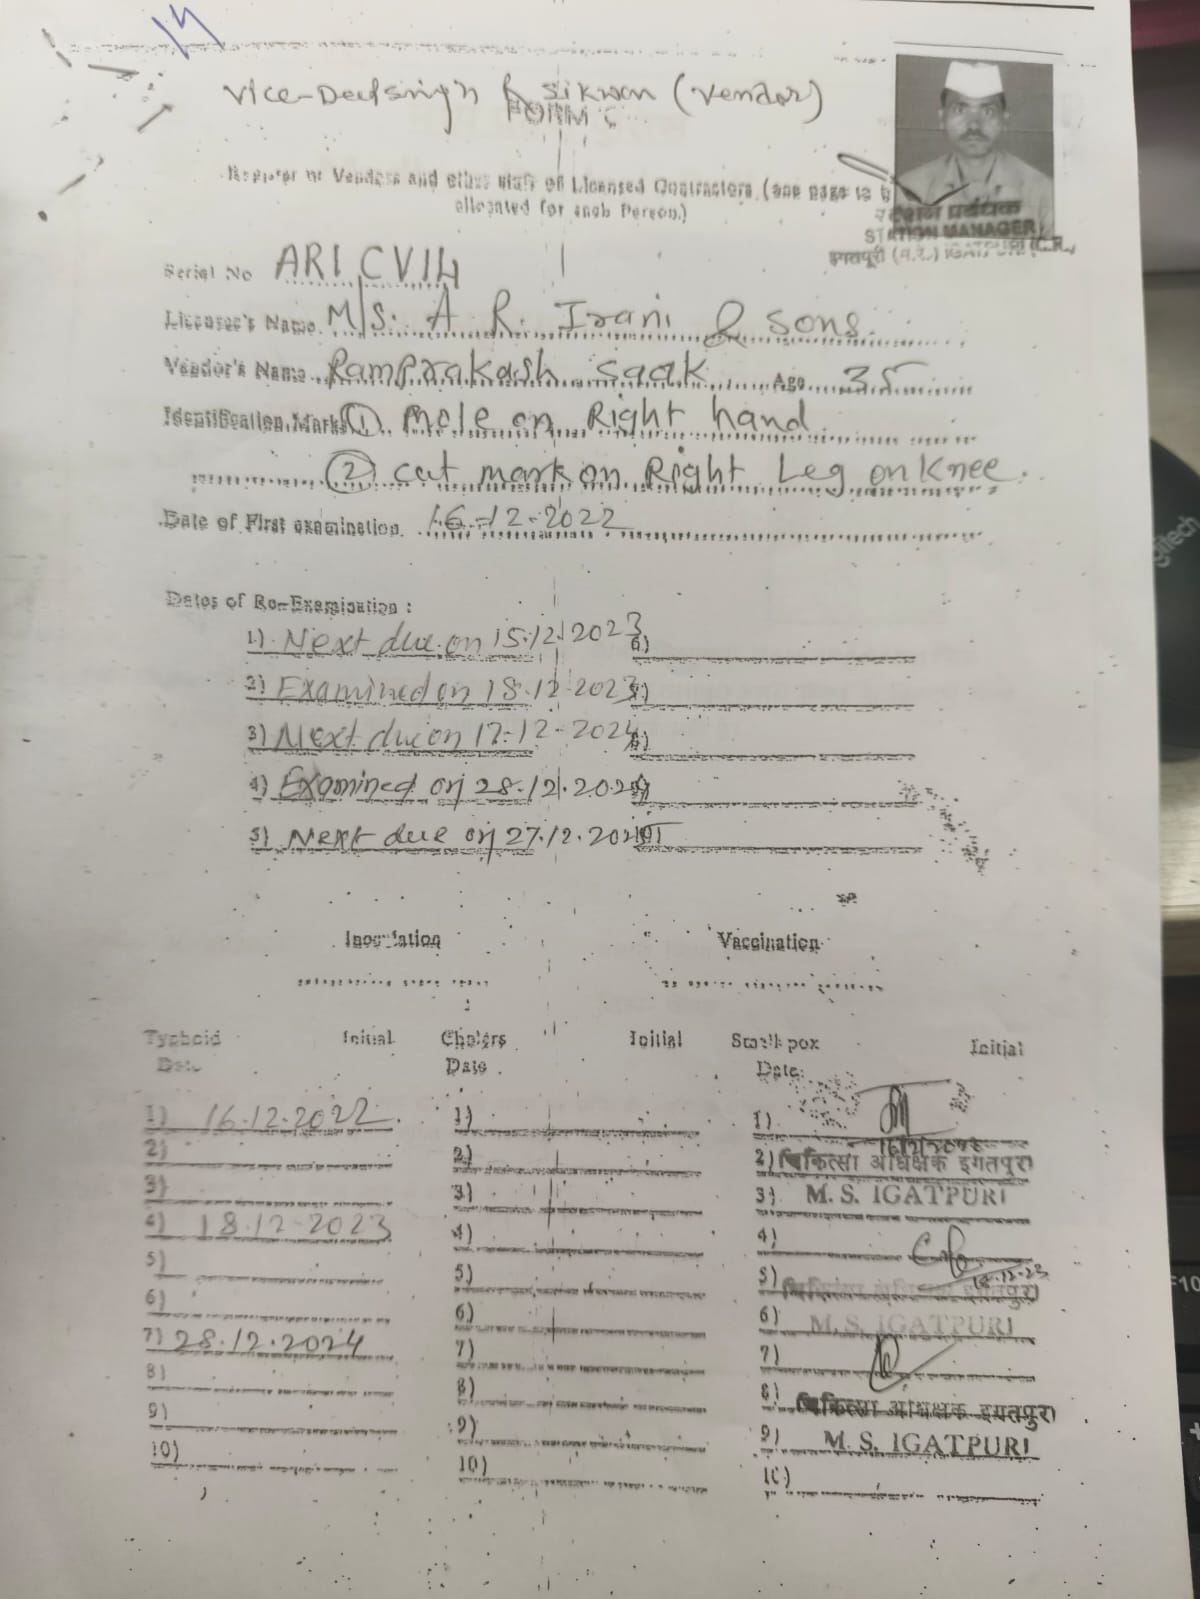 14
Vice-Deepsingh R Sikwan (Vendor)
FORM C
Register of Vendors and other staff of Licensed Contractors (one page to b
allocated for each Person.)
स्टेशन प्रबंधक
STATION MANAGER
इगतपुरी (म.रे.) IGATPURI (C.R.)
Serial No ARI CV14
Licensee's Name M/S. A R. Irani & sons.
Vendor's Name RamPrakash saak Age 35
Identification Marks ① mole on Right hand
② cut mark on Right Leg on Knee.
Date of First examination. 16-12-2022
Dates of Re-Examination :
1) Next due on 15.12.2023 6)
2) Examined on 18.12.2023 7)
3) Next due on 17-12-2024 8)
4) Examined on 28.12.2024 9)
5) Next due on 27.12.2025 10)
Inoculation Vaccination
Typhoid Initial Cholera Initial Small pox Initial
Date Date Date
1) 16.12.2022 1) 1)
2) 2) 2) चिकित्सा अधिक्षक इगतपुरी
3) 3) 3) M. S. IGATPURI
4) 18.12-2023 4) 4)
5) 5) 5) 18.12-23
6) 6) 6) M. S. IGATPURI
7) 28.12.2024 7) 7)
8) 8) 8) चिकित्सा अधिक्षक इगतपुरी
9) 9) 9) M. S. IGATPURI
10) 10) 10)